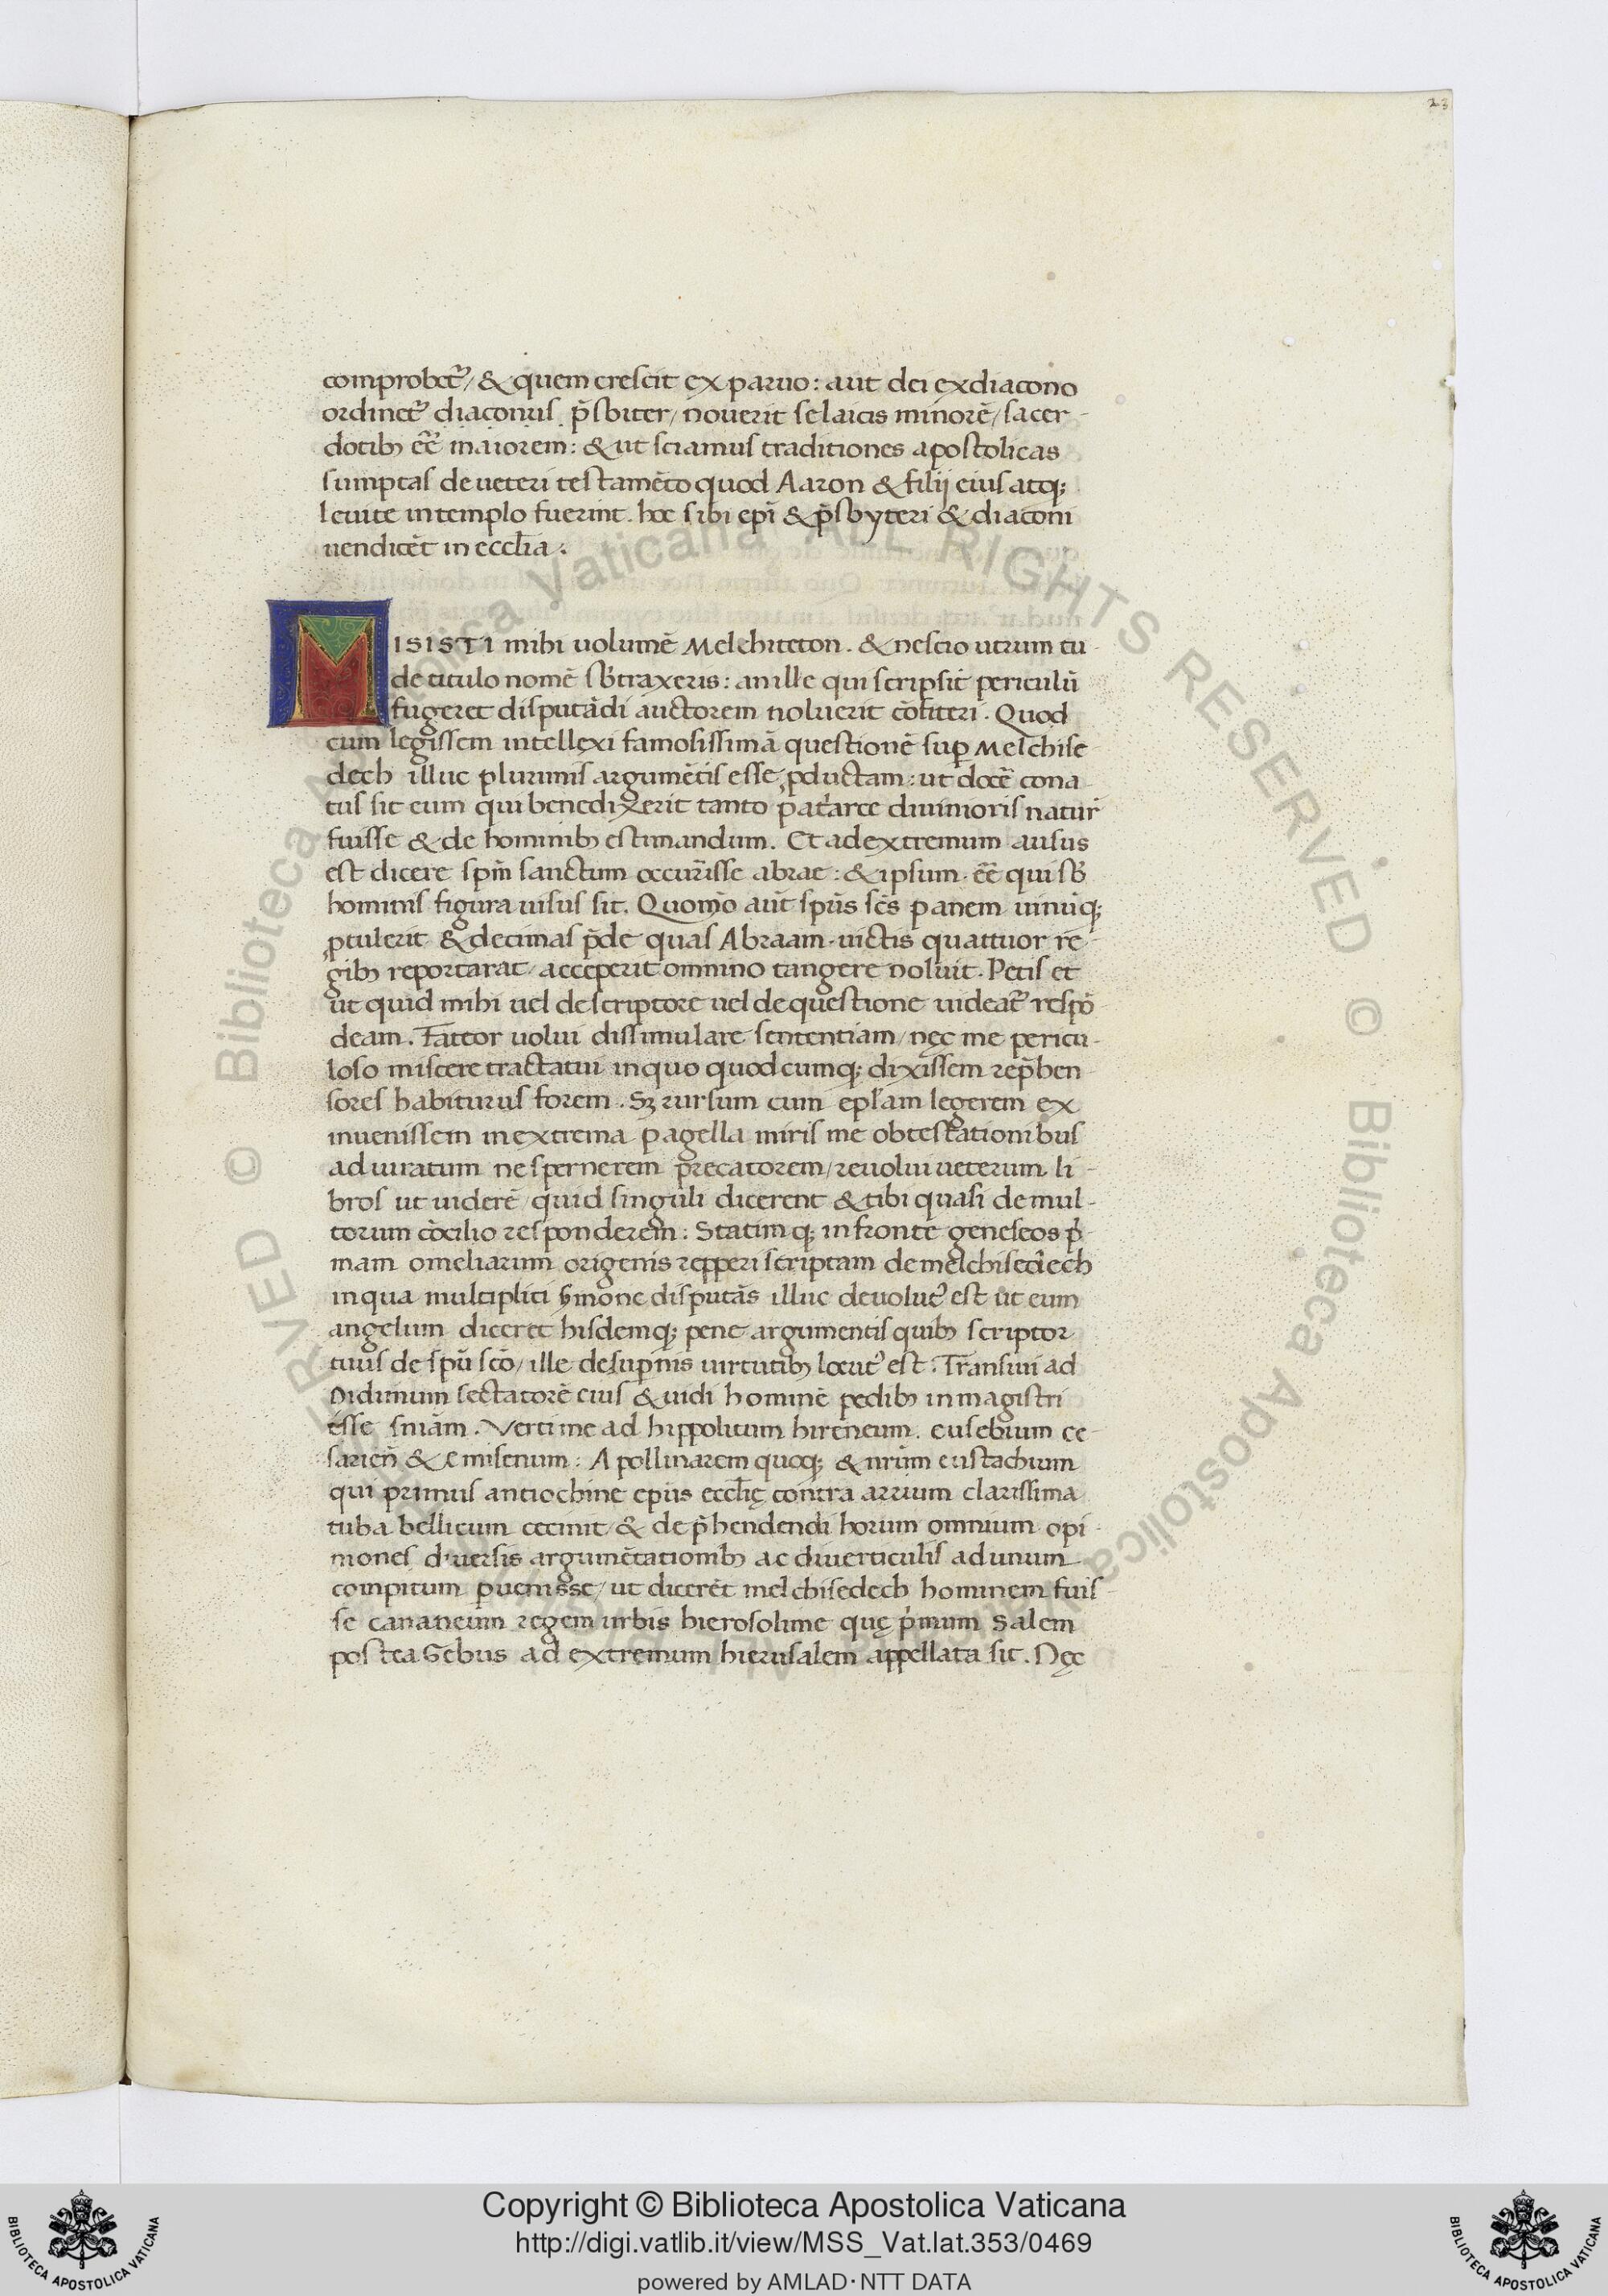 23
comprobet᷑/ & quem crescit ex paruo: aut dei ex diacono
ordinet᷑ diaconus p̄sbiter/ nouerit se laicis minorē/ sacer-
dotib; eē maiorem: & ut sciamus traditiones apostolicas
sumptas de ueteri testamēto quod Aaron & filij eius atq;
leuite in templo fuerint. hoc sibi ep̄i & p̄sbyteri & diaconi
uendicēt in eccl̄ia.
MISISTI mihi uolumē Melchiteton. & nescio utrum tu
de titulo nomē sb̄traxeris: an ille qui scripsit periculū
fugeret disputādi auctorem noluerit cōfiteri. Quod
cum legissem intellexi famosissimā questionē sup̄ Melchise-
dech illuc plurimis argumētis esse ꝓductam: ut docē cona
tus sit eum qui benedixerit tanto pat̄arce diuinioris natur̄
fuisse & de hominib; estimandum. Et ad extremum ausus
est dicere sp̄m sanctum occur̄isse abrae: & ipsum eē qui sb̄
hominis figura uisus sit. Quom̄o aūt sp̄us sc̄s panem uinūq;
ꝓtulerit & decimas p̄de quas Abraam uictis quattuor re-
gib; reportarat/ acceperit omnino tangere noluit. Petis et
ut quid mihi uel de scriptore uel de questione uideat᷑ respō
deam. Fateor uolui dissimulare sententiam/ nec me pericu-
loso miscere tractatui in quo quodcumq; dixissem rep̄hen
sores habiturus forem. Sꝫ rursum cum epl̄am legerem ex
inuenissem in extrema pagella miris me obtestationibus
adiuratum ne spernerem p̄recatorem/ reuolui ueterum li-
bros ut uiderē/ quid singuli dicerent & tibi quasi de mul-
torum cōcilio responderem: Statimq; in fronte geneseos p̄-
mam omeliarum origenis repperi scriptam de melchisedech
in qua multiplici s̄mone disputās illuc deuolut᷒ est ut eum
angelum diceret hisdemq; pene argumentis quib; scriptor
tuus de sp̄u sc̄o/ ille de sup̄nis uirtutib; locut᷒ est. Trāsiui ad
Didimum sectatorē eius & uidi hominē pedib; in magistri
esse sn̄iam. Verti me ad hippolitum hireneum. eusebium ce-
sarien̄ & emisenum: Apollinarem quoq; & nr̄um eustachium
qui primus antiochine ep̄us eccl̄ię contra arrium clarissima
tuba bellicum cecinit/ & dep̄hendendi horum omnium opi-
niones diuersis argumētationib; ac diuerticulis ad unum
compitum p̱uenisse/ ut dicerēt melchisedech hominem fuis-
se cananeum regem urbis hierosolime quę p̄mum Salem
postea Gebus ad extremum hierusalem appellata sit. Nęc
© Biblioteca Apostolica Vaticana ALL RIGHTS RESERVED © Biblioteca Apostolica Vaticana ALL RIGHTS RESERVED
Copyright © Biblioteca Apostolica Vaticana
http://digi.vatlib.it/view/MSS_Vat.lat.353/0469
powered by AMLAD·NTT DATA
BIBLIOTECA APOSTOLICA VATICANA
BIBLIOTECA APOSTOLICA VATICANA